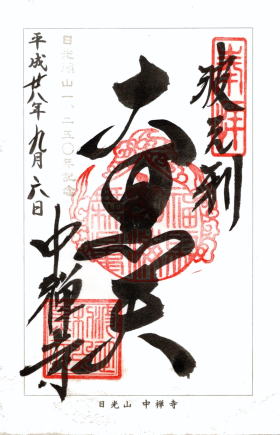 奉拝
波之利
大黒天
日光開山一、二五〇年記念
平成廿八年九月六日
中禅寺
日光山 中禅寺